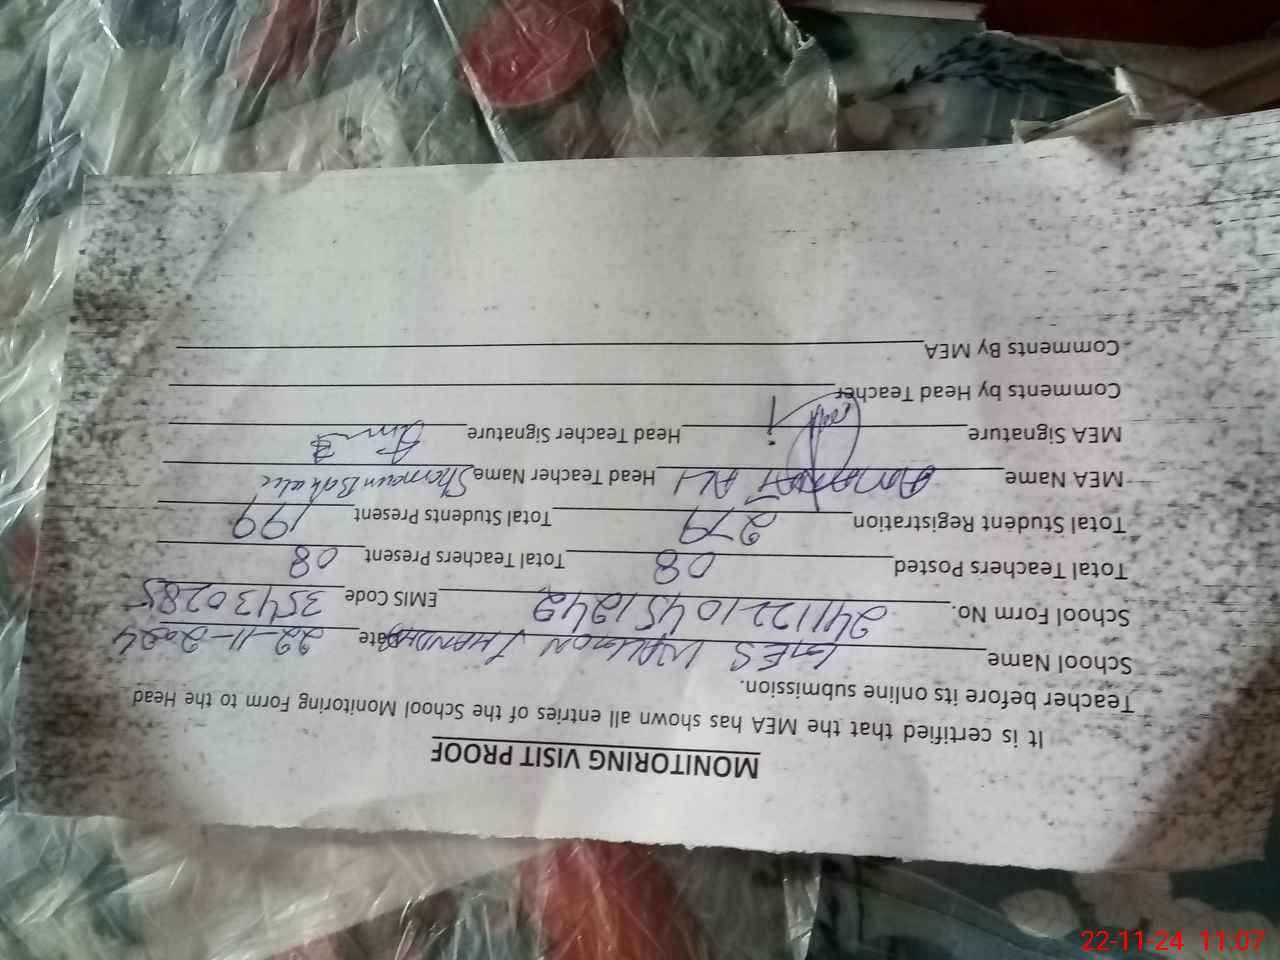 MONITORING VISIT PROOF
It is certified that the MEA has shown all entries of the School Monitoring Form to the Head
Teacher before its online submission.
School Name GES Date 22-11-2024
School Form No. 241122104451242 EMIS Code 35430285
Total Teachers Posted 08 Total Teachers Present 08
Total Student Registration 279 Total Students Present 199
MEA Name AMANAT ALI Head Teacher Name
MEA Signature Head Teacher Signature
Comments by Head Teacher
Comments By MEA
22-11-24 11:07